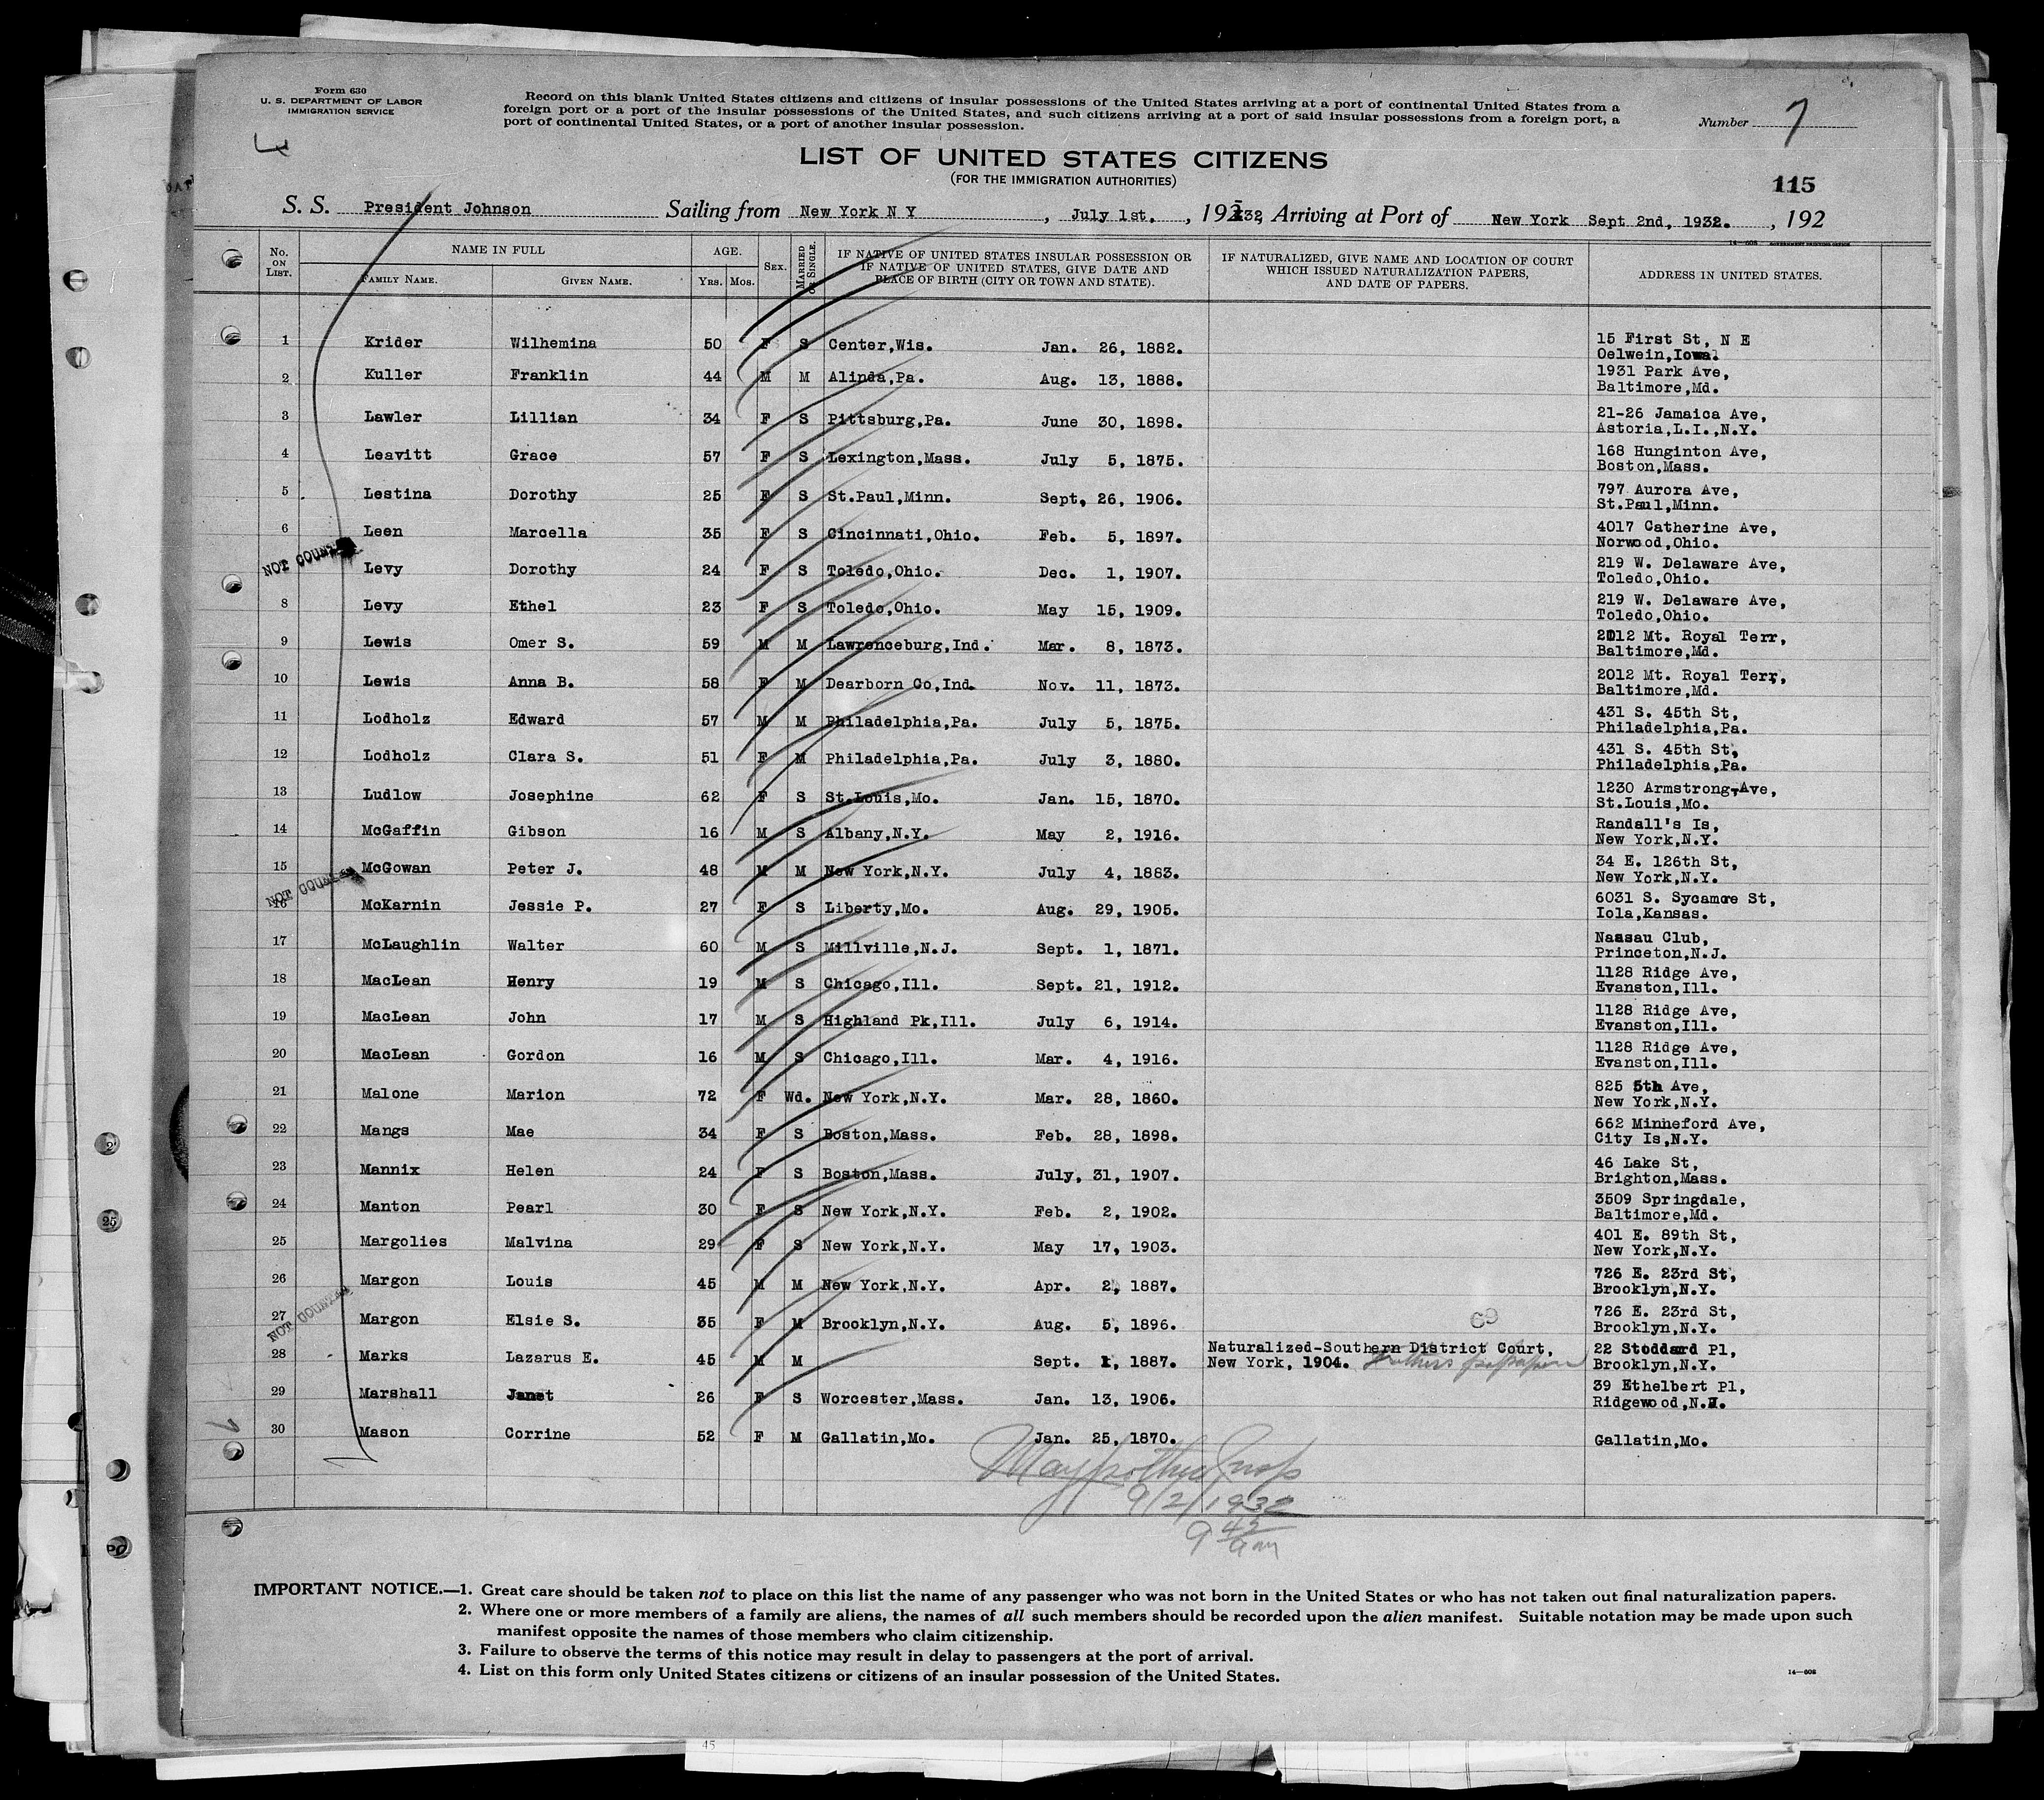 Form 630
U. S. DEPARTMENT OF LABOR
IMMIGRATION SERVICE
Record on this blank United States citizens and citizens of insular possessions of the United States arriving at a port of continental United States from a
foreign port or a port of the insular possessions of the United States, and such citizens arriving at a port of said insular possessions from a foreign port, a
port of continental United States, or a port of another insular possession.
Number 7
LIST OF UNITED STATES CITIZENS
(FOR THE IMMIGRATION AUTHORITIES)
115
S. S. President Johnson Sailing from New York N Y, July 1st., 1932, Arriving at Port of New York Sept 2nd, 1932., 192
14—608 GOVERNMENT PRINTING OFFICE
No. ON LIST. NAME IN FULL FAMILY NAME. GIVEN NAME. AGE. YRS. MOS. SEX. MARRIED OR SINGLE. IF NATIVE OF UNITED STATES INSULAR POSSESSION OR IF NATIVE OF UNITED STATES, GIVE DATE AND PLACE OF BIRTH (CITY OR TOWN AND STATE). IF NATURALIZED, GIVE NAME AND LOCATION OF COURT WHICH ISSUED NATURALIZATION PAPERS, AND DATE OF PAPERS. ADDRESS IN UNITED STATES.
1 Krider Wilhemina 50 F S Center,Wis. Jan. 26, 1882. 15 First St, N E
Oelwein,Iowa.
2 Kuller Franklin 44 M M Alinda,Pa. Aug. 13, 1888. 1931 Park Ave,
Baltimore,Md.
3 Lawler Lillian 34 F S Pittsburg,Pa. June 30, 1898. 21-26 Jamaica Ave,
Astoria,L.I.,N.Y.
4 Leavitt Grace 57 F S Lexington,Mass. July 5, 1875. 168 Hunginton Ave,
Boston,Mass.
5 Lestina Dorothy 25 F S St.Paul,Minn. Sept, 26, 1906. 797 Aurora Ave,
St.Paul,Minn.
6 Leen Marcella 35 F S Cincinnati,Ohio. Feb. 5, 1897. 4017 Catherine Ave,
Norwood,Ohio.
NOT COUNTED
Levy Dorothy 24 F S Toledo,Ohio. Dec. 1, 1907. 219 W. Delaware Ave,
Toledo,Ohio.
8 Levy Ethel 23 F S Toledo,Ohio. May 15, 1909. 219 W. Delaware Ave,
Toledo,Ohio.
9 Lewis Omer S. 59 M M Lawrenceburg,Ind. Mar. 8, 1873. 2012 Mt. Royal Terr,
Baltimore,Md.
10 Lewis Anna B. 58 F M Dearborn Co,Ind. Nov. 11, 1873. 2012 Mt. Royal Terr,
Baltimore,Md.
11 Lodholz Edward 57 M M Philadelphia,Pa. July 5, 1875. 431 S. 45th St,
Philadelphia,Pa.
12 Lodholz Clara S. 51 F M Philadelphia,Pa. July 3, 1880. 431 S. 45th St,
Philadelphia,Pa.
13 Ludlow Josephine 62 F S St.Louis,Mo. Jan. 15, 1870. 1230 Armstrong,Ave,
St.Louis,Mo.
14 McGaffin Gibson 16 M S Albany,N.Y. May 2, 1916. Randall's Is,
New York,N.Y.
15 McGowan Peter J. 48 M M New York,N.Y. July 4, 1883. 34 E. 126th St,
New York,N.Y.
NOT COUNTED
16 McKarnin Jessie P. 27 F S Liberty,Mo. Aug. 29, 1905. 6031 S. Sycamore St,
Iola,Kansas.
17 McLaughlin Walter 60 M S Millville,N.J. Sept. 1, 1871. Nassau Club,
Princeton,N.J.
18 MacLean Henry 19 M S Chicago,Ill. Sept. 21, 1912. 1128 Ridge Ave,
Evanston,Ill.
19 MacLean John 17 M S Highland Pk,Ill. July 6, 1914. 1128 Ridge Ave,
Evanston,Ill.
20 MacLean Gordon 16 M S Chicago,Ill. Mar. 4, 1916. 1128 Ridge Ave,
Evanston,Ill.
21 Malone Marion 72 F Wd. New York,N.Y. Mar. 28, 1860. 825 5th Ave,
New York,N.Y.
22 Mangs Mae 34 F S Boston,Mass. Feb. 28, 1898. 662 Minneford Ave,
City Is,N.Y.
23 Mannix Helen 24 F S Boston,Mass. July, 31, 1907. 46 Lake St,
Brighton,Mass.
24 Manton Pearl 30 F S New York,N.Y. Feb. 2, 1902. 3509 Springdale,
Baltimore,Md.
25 Margolies Malvina 29 F S New York,N.Y. May 17, 1903. 401 E. 89th St,
New York,N.Y.
26 Margon Louis 45 M M New York,N.Y. Apr. 2, 1887. 726 E. 23rd St,
Brooklyn,N.Y.
NOT COUNTED
27 Margon Elsie S. 35 F M Brooklyn,N.Y. Aug. 5, 1896. 726 E. 23rd St,
Brooklyn,N.Y.
69
28 Marks Lazarus E. 45 M M Sept. 1, 1887. Naturalized-Southern District Court, 22 Stoddard Pl,
New York, 1904. Brooklyn,N.Y.
29 Marshall Janet 26 F S Worcester,Mass. Jan. 13, 1906. 39 Ethelbert Pl,
Ridgewood,N.J.
30 Mason Corrine 52 F M Gallatin,Mo. Jan. 25, 1870. Gallatin,Mo.
9/2/1932
9 45 am
IMPORTANT NOTICE.—1. Great care should be taken not to place on this list the name of any passenger who was not born in the United States or who has not taken out final naturalization papers.
2. Where one or more members of a family are aliens, the names of all such members should be recorded upon the alien manifest. Suitable notation may be made upon such
manifest opposite the names of those members who claim citizenship.
3. Failure to observe the terms of this notice may result in delay to passengers at the port of arrival.
4. List on this form only United States citizens or citizens of an insular possession of the United States.
14—608
45
25